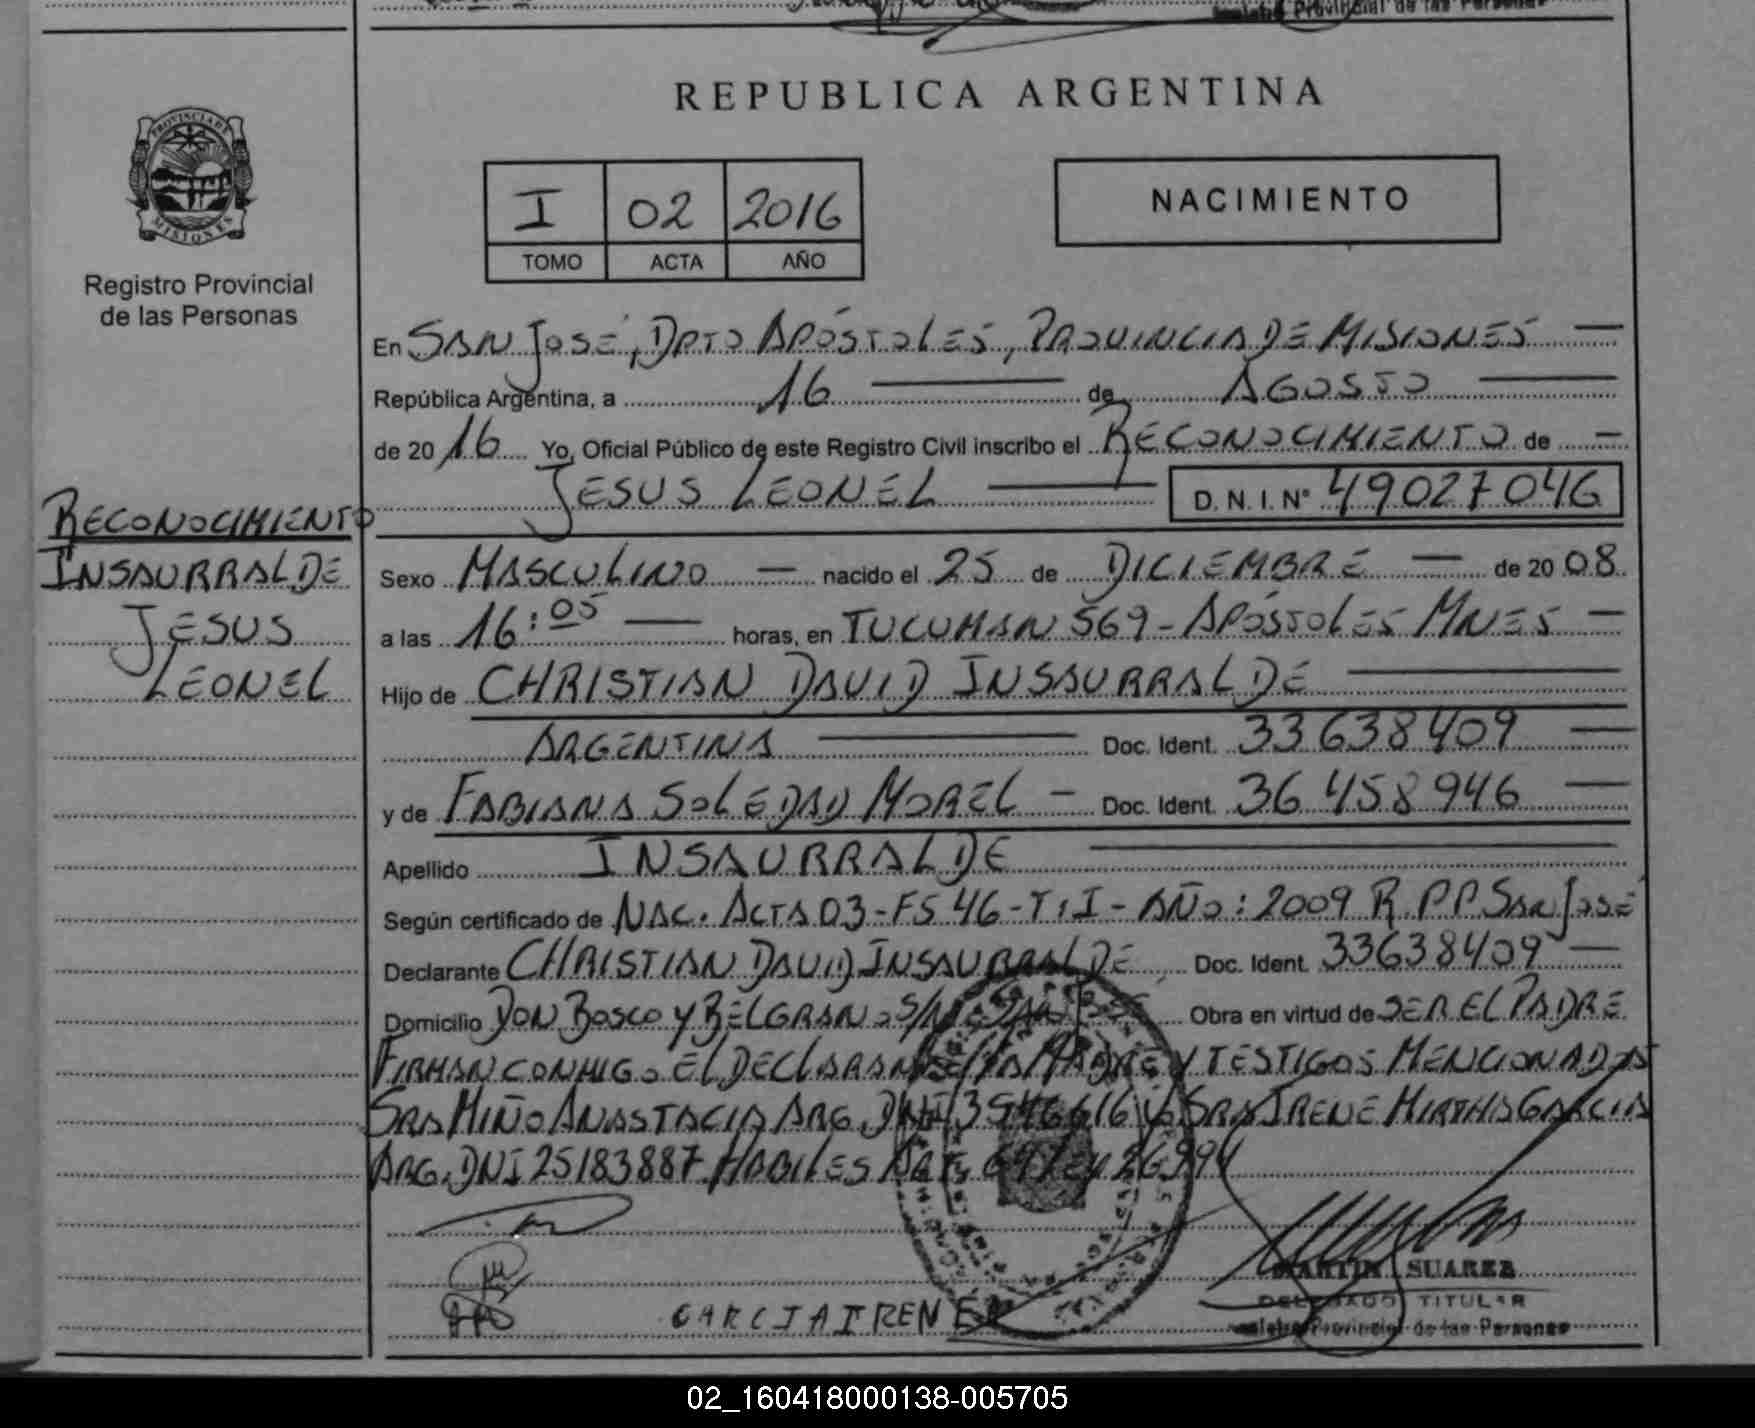 REPUBLICA ARGENTINA
I 02 2016
TOMO ACTA AÑO
NACIMIENTO
PROVINCIA DE
MISIONES
Registro Provincial
de las Personas
RECONOCIMIENTO
INSAURRALDE
JESUS
LEONEL
En SAN JOSÉ, DPTO APÓSTOLES, PROVINCIA DE MISIONES
República Argentina, a 16 de AGOSTO
de 2016 Yo, Oficial Público de este Registro Civil inscribo el RECONOCIMIENTO de
JESUS LEONEL D. N. I. N° 49027046
Sexo MASCULINO nacido el 25 de DICIEMBRE de 2008
a las 16:05 horas, en TUCUMAN 569 - APÓSTOLES MNES
Hijo de CHRISTIAN DAVID INSAURRALDE
ARGENTINA Doc. Ident. 33638409
y de FABIANA SOLEDAD MOREL - Doc. Ident. 36458946
Apellido INSAURRALDE
Según certificado de NAC. ACTA 03-FS 46-T:I-AÑO: 2009 R.P.P SAN JOSÉ
Declarante CHRISTIAN DAVID INSAURRALDE Doc. Ident. 33638409
Domicilio DON BOSCO Y BELGRANO S/N SAN JOSÉ Obra en virtud de SER EL PADRE
FIRMAN CONMIGO EL DECLARANTE LA MADRE Y TESTIGOS MENCIONADOS
SRA MIÑO ANASTACIA ARG. DNI Y SRA IRENE MIRTHA GARCIA
ARG. DNI 25183887 HABILES LEY 26994
GARCIA IRENE
MARTIN SUAREZ
DELEGADO TITULAR
Provincial de las Personas
02_160418000138-005705